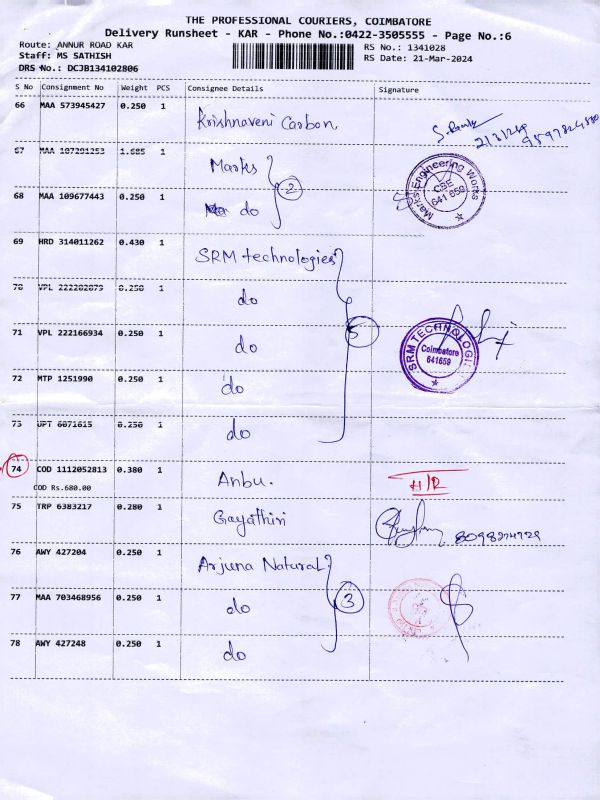 THE PROFESSIONAL COURIERS, COIMBATORE
Delivery Runsheet - KAR - Phone No.:0422-3505555 - Page No.:6
Route: ANNUR ROAD KAR
RS No.: 1341028
Staff: MS SATHISH
RS Date: 21-Mar-2024
DRS No.: DCJB134102806
S No Consignment No Weight PCS Consignee Details Signature
66 MAA 573945427 0.250 1 Krishnaveni Carbon,
21/3/24
67 MAA 107291253 1.685 1 Marks
2
Marks Engineering Works
CBE
641 659
68 MAA 109677443 0.250 1 do
69 HRD 314011262 0.430 1 SRM technologies
70 VPL 222282879 0.250 1 do
5
71 VPL 222166934 0.250 1 do
SRM TECHNOLOGI
Coimbatore
641659
72 MTP 1251990 0.250 1 do
73 UPT 6071615 0.250 1 do
74 COD 1112052813 0.380 1 Anbu.
H/R
COD Rs.680.00
75 TRP 6383217 0.280 1 Gayathiri
76 AWY 427204 0.250 1 Arjuna Natural
77 MAA 703468956 0.250 1 do
3
78 AWY 427248 0.250 1 do